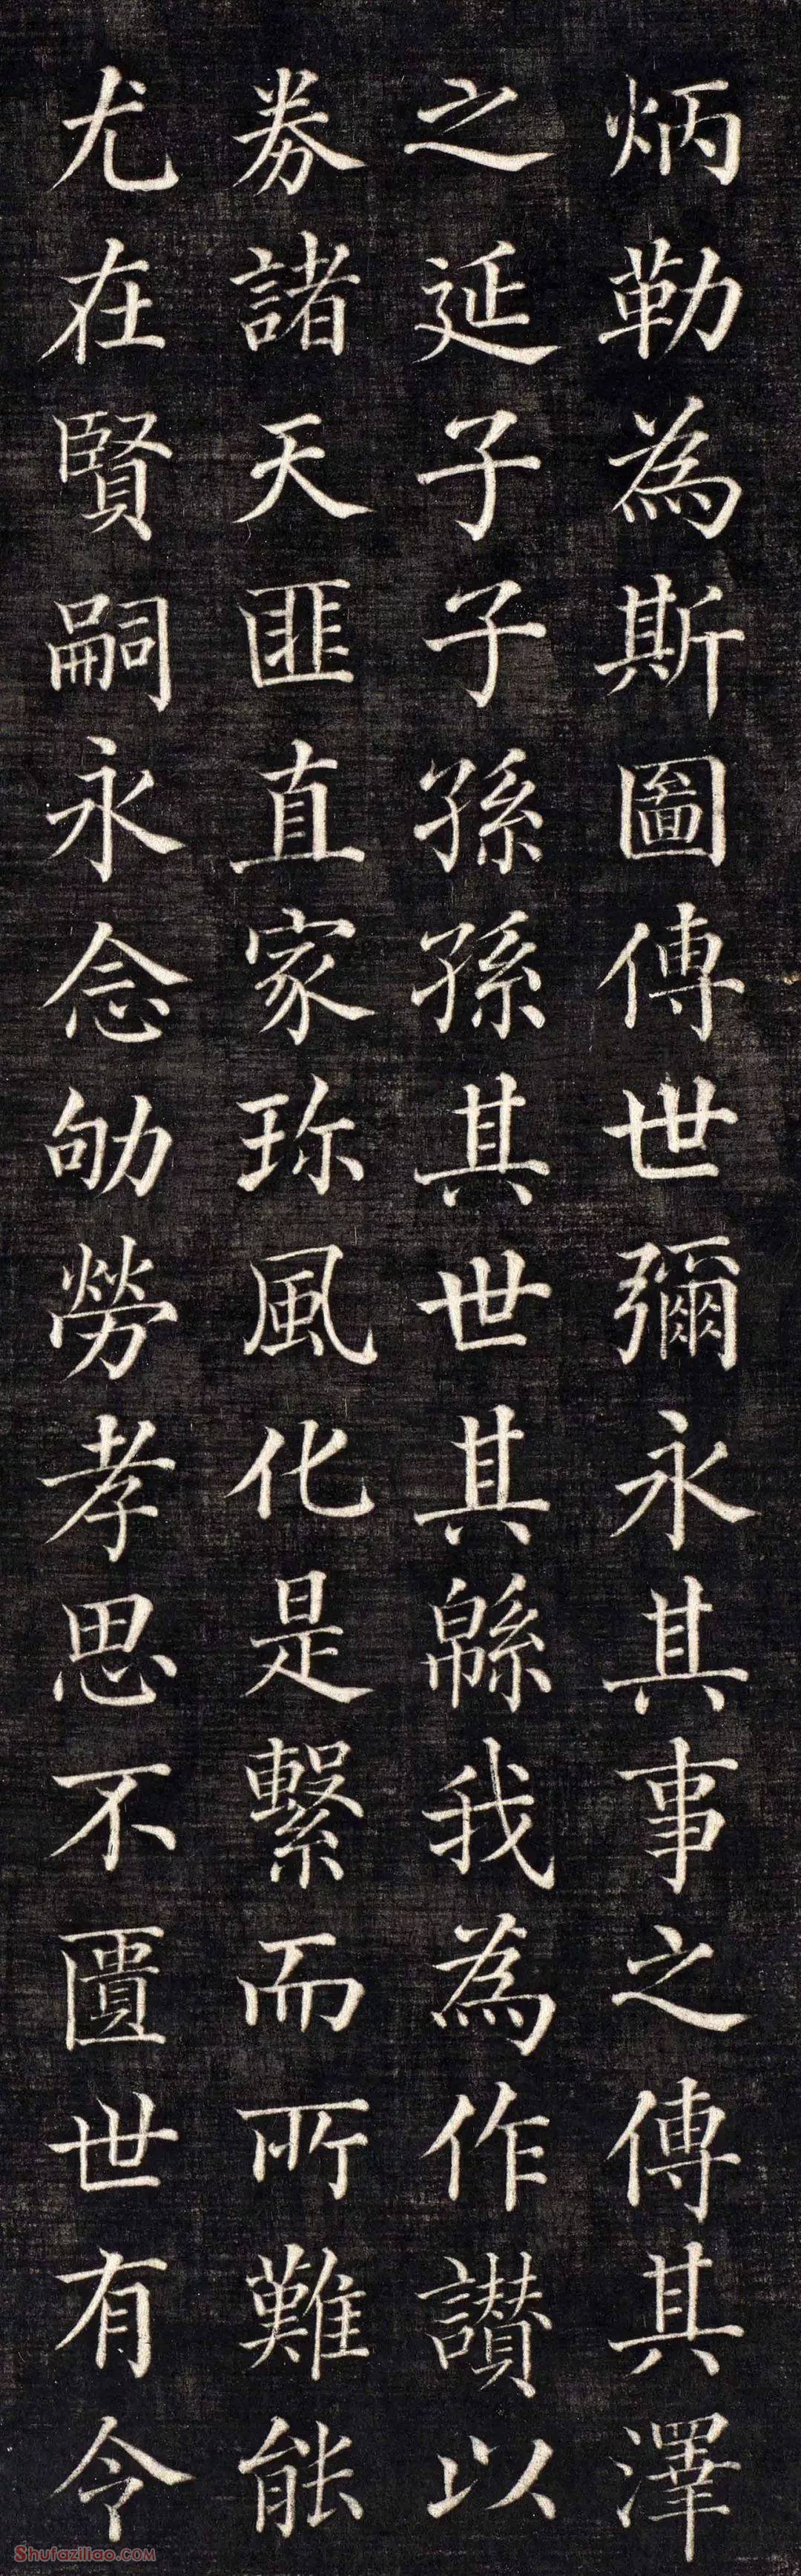 炳勒為斯圖傳世彌永其事之傳其澤
之延子子孫孫其世其緜我為作讃以
券諸天匪直家珎風化是繫而所難能
尤在賢嗣永念劬勞孝思不匱世有令
Shufaziliao.COM